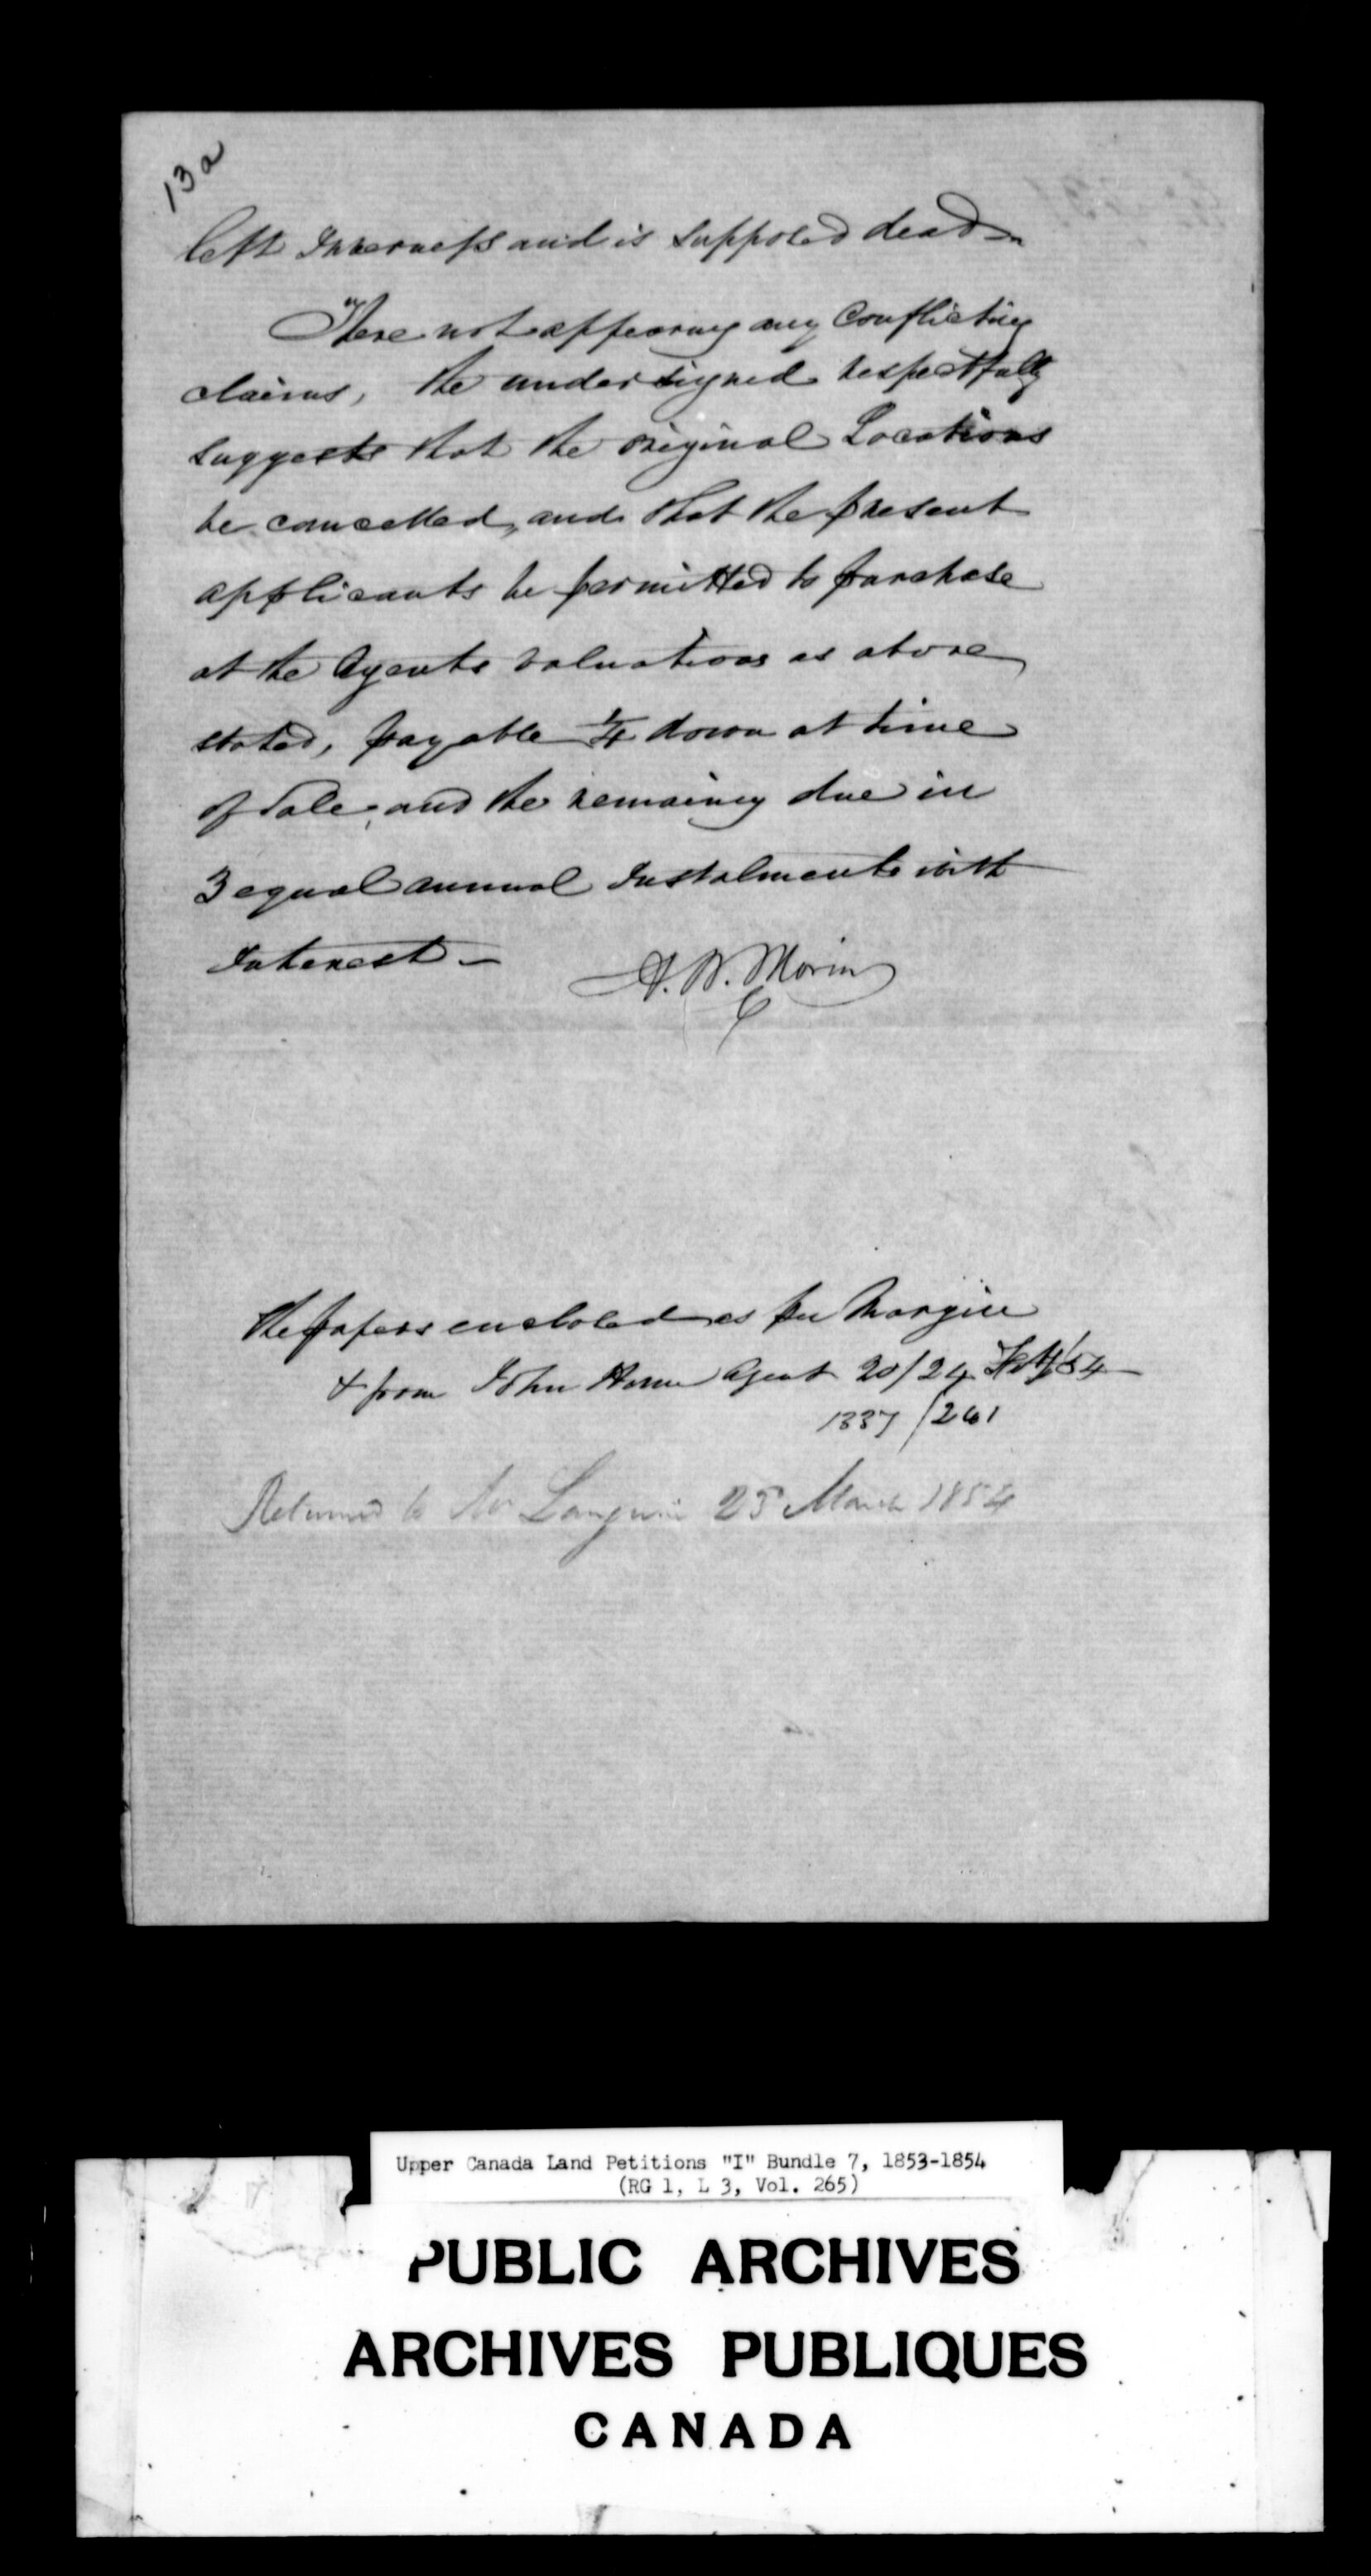 13a
left Inverness and is supposed dead —
There not appearing any Conflicting
claims, the undersigned respectfully
suggests that the original Locations
be cancelled, and that the present
applicants be permitted to purchase
at the Agents valuations as above
stated, payable 1/4 down at time
of Sale, and the remainig due in
3 equal annual Instalments with
Interest —
A. N. Morin
The papers enclosed as per Margin
& from John Hume Agent 20/24 Feby/54 —
1337/261
Returned to Mr Langevin 25 March 1854
Upper Canada Land Petitions "I" Bundle 7, 1853-1854
(RG 1, L 3, Vol. 265)
PUBLIC ARCHIVES
ARCHIVES PUBLIQUES
CANADA